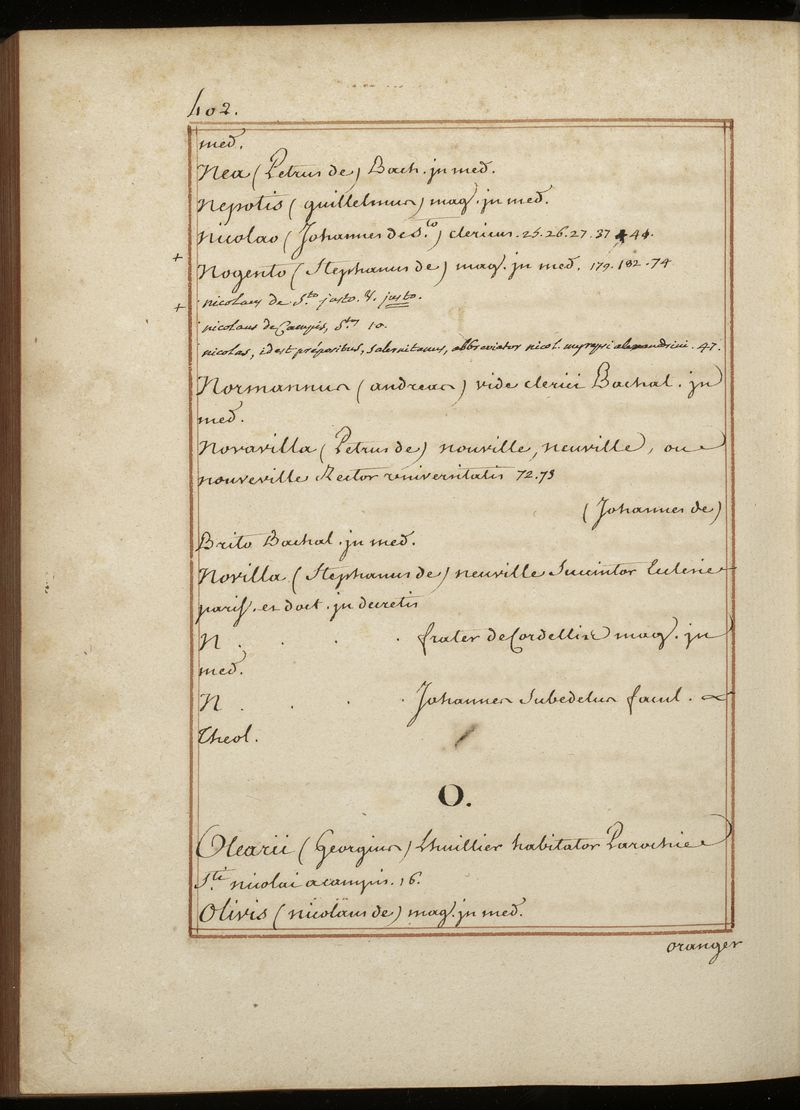 402.
med.
Nea (Petrus de) Bach. jn med.
Nepotis (guillelmus) mag. jn med.
Nicolao (Johannes de S.to) clericus. 25.26.27.37 44.
+
Nogento (Stephanus de) mag. jn med. 179. 182. 74
nicolaus de S.to justo. V. justo.
+
nicolaus de Campis, S.tus 10.
nicolas, id est prépositus, salernitanus, abbreviator nicol. myrepsi alexandrini. 47.
Normannus (andreas) vide clerici Bachal. jn
med.
Novavilla (Petrus de) nouville, neuville, ou
nouveville Rector universitatis 72.73
(Johannes de)
Brito Bachal. jn med.
Novilla (Stephanus de) neuville Succintor Eclesie
paris. et doct. jn decretis
N . . . . frater de Cordellis mag. jn
med.
N . . . . Johannes Subedelus facul.
Theol.
O.
Olearii (Georgius) Lhuillier habitator Parochie
S.ti nicolai a campis. 16.
Olivis (nicolaus de) mag. jn med.
oranger